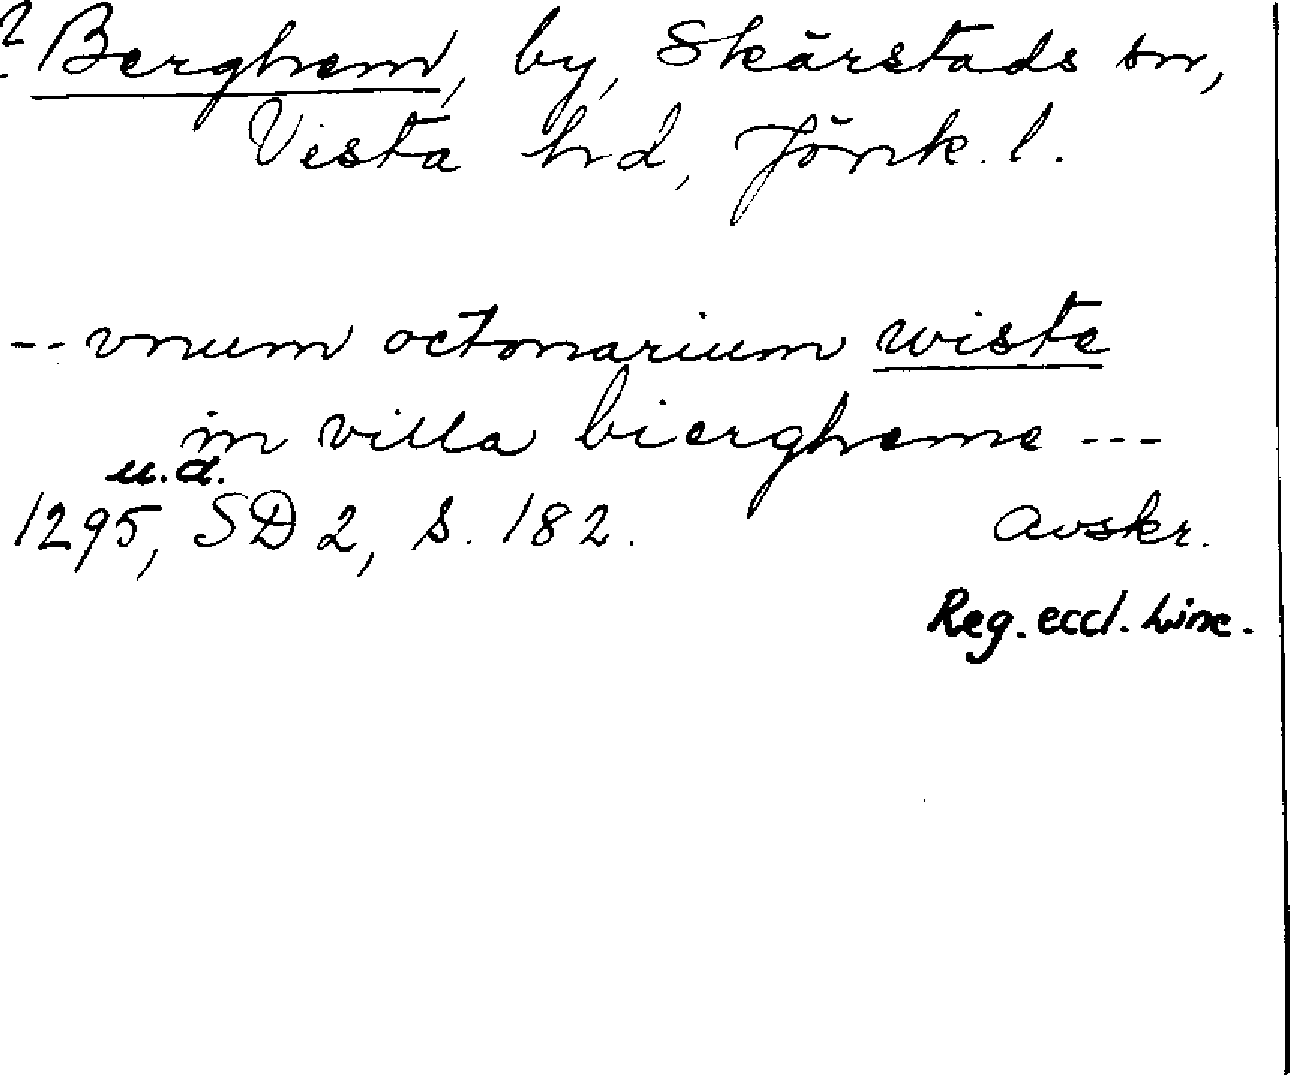 ? Berghem, by, Skärstads sn,
Vista hd, Jönk. l.
-- vnum octonarium wiste
in villa biergheme ---
u.d.
1295, SD 2, s. 182. avskr.
Reg. eccl. Linc.